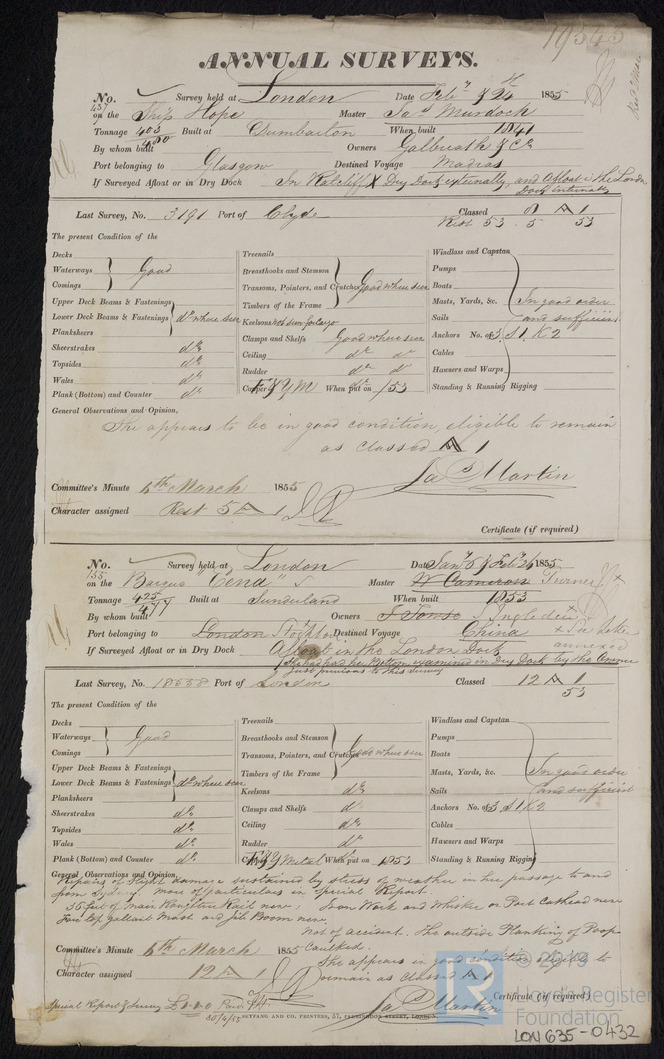 19343
ANNUAL SURVEYS.
No. 437 Survey held at London Date Feby 7 & 24th 1855
on the Ship Hope Master Jas Murdoch
Tonnage 403/400 Built at Dumbarton When built 1841
By whom built Owners Galbreath & Co
Port belonging to Glasgow Destined Voyage Madras
If Surveyed Afloat or in Dry Dock In Ratcliff X Dry Dock externally, and Afloat in the London Dock internally
Last Survey, No. 3191 Port of Clyde Classed A 1
Rest 53 . 5 53
The present Condition of the
Decks
Waterways Good
Comings
Upper Deck Beams & Fastenings
Lower Deck Beams & Fastenings do where seen
Planksheers
Sheerstrakes do
Topsides do
Wales do
Plank (Bottom) and Counter do
Treenails
Breasthooks and Stemson
Transoms, Pointers, and Crutches Good where seen
Timbers of the Frame
Keelsons Not seen for Cargo
Clamps and Shelfs Good where seen
Ceiling do do
Rudder do do
Copper YM When put on /53
Windlass and Capstan
Pumps
Boats
Masts, Yards, &c. In good order
Sails and sufficient
Anchors No. of 3, S 1, K 2
Cables
Hawsers and Warps
Standing & Running Rigging
General Observations and Opinion,
She appears to be in good condition, eligible to remain
as Classed A 1
Jas Martin
Committee's Minute 6th March 1855
Character assigned Rest 5 A 1
Certificate (if required)
No. 155 Survey held at London Date Jany 6 & Feby 26 1855
on the Barque "Cena" Master W Cameron Turner
Tonnage 425/477 Built at Sunderland When built 1853
By whom built Owners Ingledew
Port belonging to London Stockton Destined Voyage China
annexed
If Surveyed Afloat or in Dry Dock Afloat in the London Dock
She has had her Bottom examined in Dry Dock by the Owner
just previous to this Survey
Last Survey, No. 18558 Port of London Classed 12 A 1
53
The present Condition of the
Decks
Waterways Good
Comings
Upper Deck Beams & Fastenings
Lower Deck Beams & Fastenings do where seen
Planksheers
Sheerstrakes do
Topsides do
Wales do
Plank (Bottom) and Counter do
Treenails
Breasthooks and Stemson
Transoms, Pointers, and Crutches Good where seen
Timbers of the Frame
Keelsons do
Clamps and Shelfs do
Ceiling do
Rudder do
Copper Y Metal When put on 1853
Windlass and Capstan
Pumps
Boats
Masts, Yards, &c. In good order
Sails and sufficient
Anchors No. of 3 S 1 K 2
Cables
Hawsers and Warps
Standing & Running Rigging
General Observations and Opinion,
Repairs of slight damage sustained by stress of weather in her passage to and
from Sydney. more of particulars in Special Report.
35 feet of Main Roughtree Rail new. Iron Work and Whisker on Port Cathead new
Fore top gallant Mast and Jib Boom new.
Not of accident. The outside Planking of Poop
Caulked.
She appears in good condition eligible to
remain as classed A 1
Committee's Minute 6th March 1855
Character assigned 12 A 1
Jas Martin
Certificate (if required)
Special Report & Survey £1.0.0 Paid
30/4/55
SEYFANG AND CO. PRINTERS, 57, FARRINGDON STREET, LONDON.
© 2019
Lloyd's Register
Foundation
LR
LON 635-0432